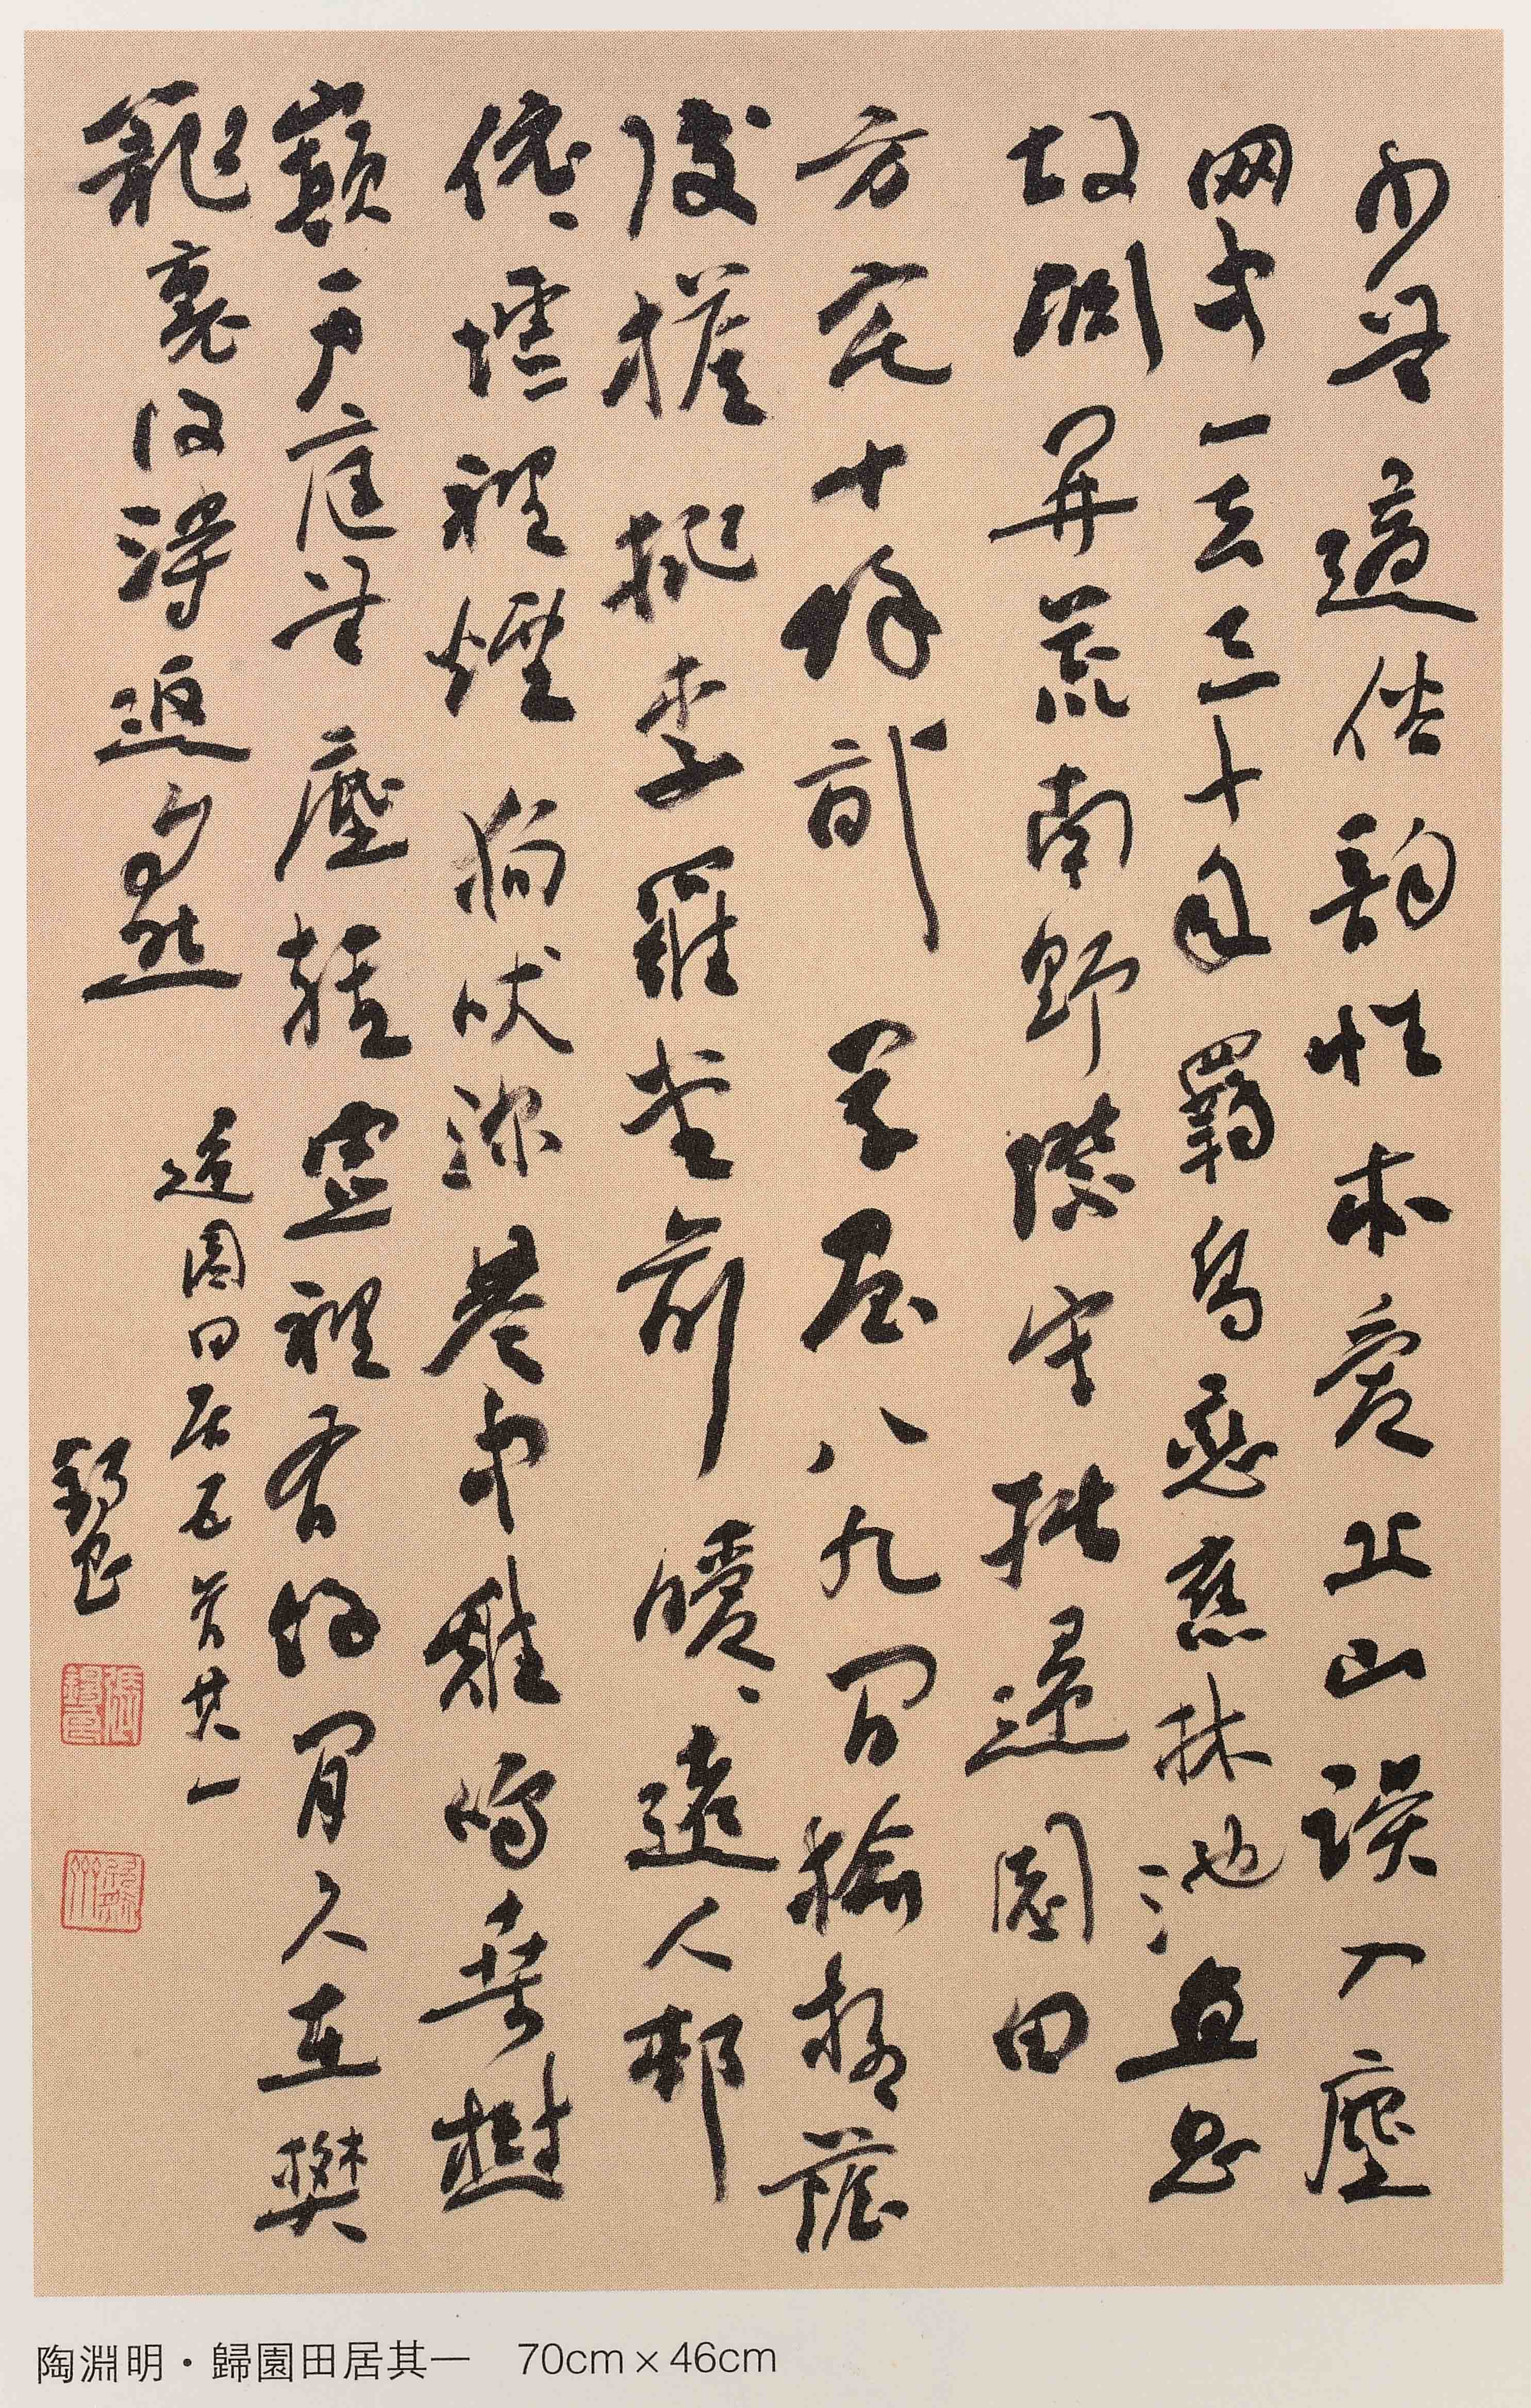 少無適俗韵性本愛丘山誤入塵
網中一去三十年羈鳥戀舊林池魚思
故淵開荒南野際守拙歸園田
方宅十餘畝草屋八九間榆柳蔭
後檐桃李羅堂前曖〻遠人邨
依〻墟裡煙狗吠深巷中雞鳴桑樹
巔戶庭無塵雜虛裡有餘閒久在樊
籠裏復得返自然
歸園田居五首其一
錫良
張錫良
陶淵明·歸園田居其一 70cm×46cm